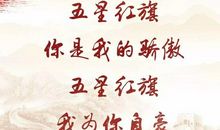 五星红旗
你是我的骄傲
五星红旗
我为你自豪